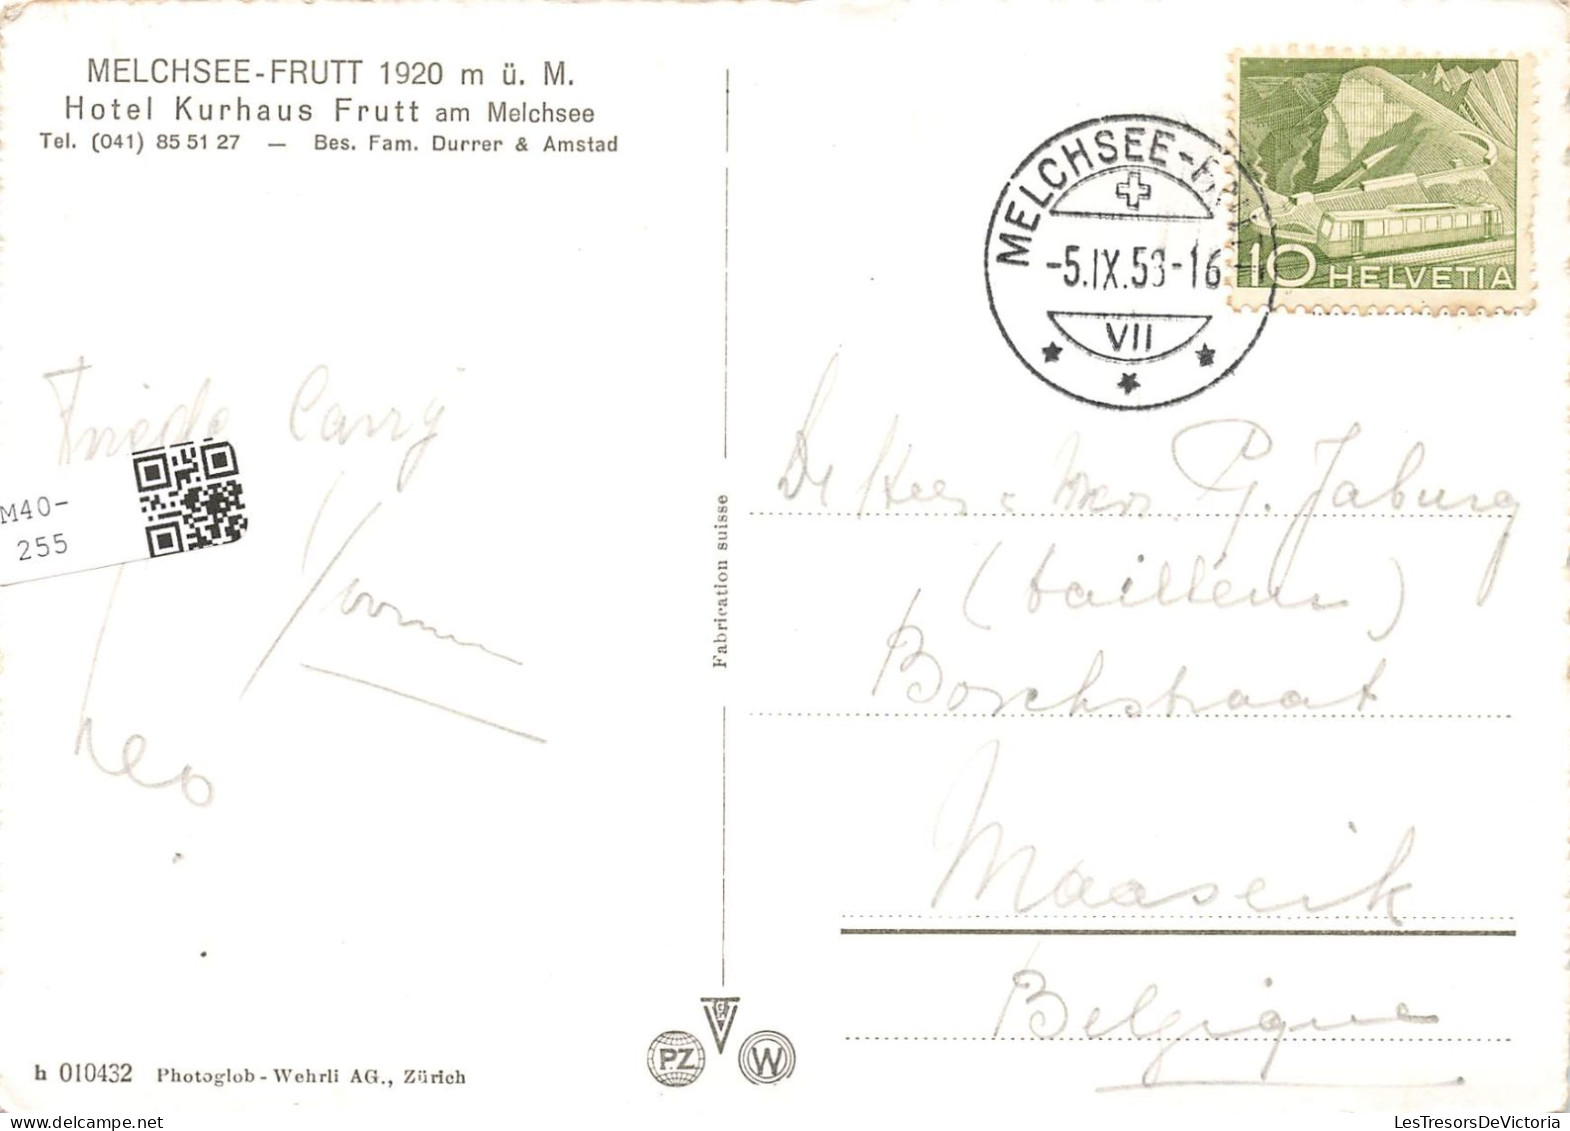 MELCHSEE-FRUTT 1920 m ü. M.
Hotel Kurhaus Frutt am Melchsee
Tel. (041) 85 51 27 — Bes. Fam. Durrer & Amstad
MELCHSEE-FRUTT
-5.IX.53-16
VII
10 HELVETIA
Carry
M40-
255
Leo
Fabrication suisse
P. G. Jaburg
Boschstraat
Maaseik
Belgique
PZ
W
h 010432 Photoglob-Wehrli AG., Zürich
LesTresorsDeVictoria